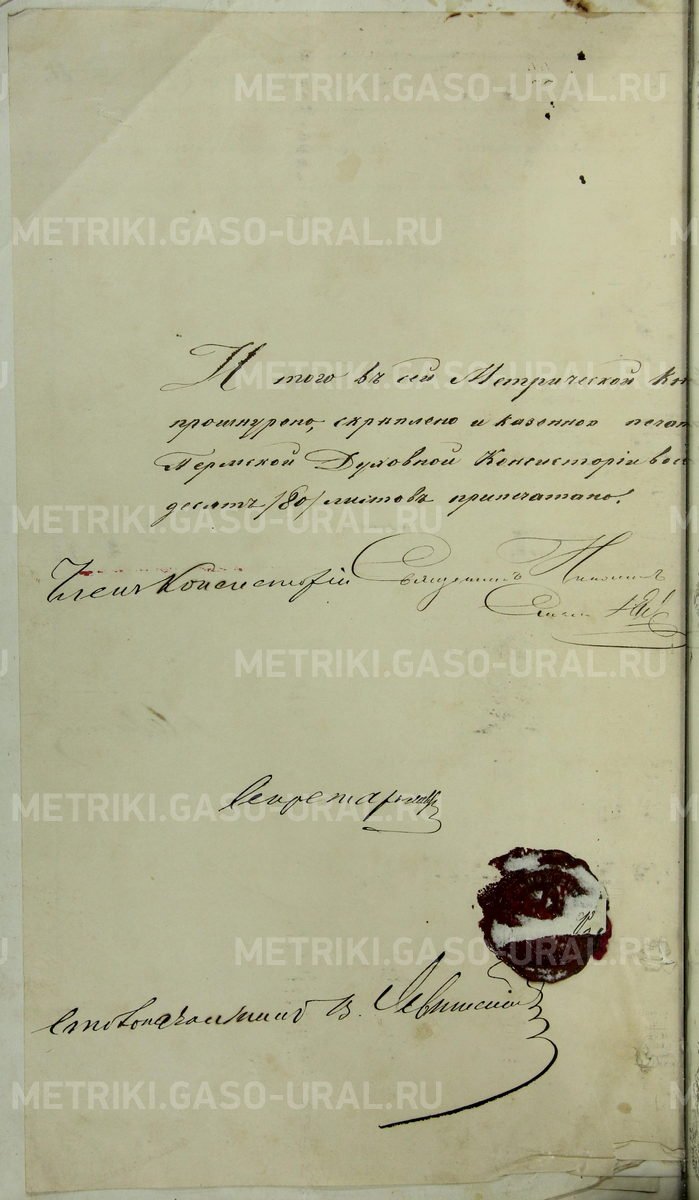 METRIKI.GASO-URAL.RU
METRIKI.GASO-URAL.RU
Итого въ сей Метрической Кн
прошнурено, скрѣплено и казенною печат
Пермской Духовной Консисторіи восе
десятъ /80/ листовъ припечатано.
METRIKI.GASO-URAL.RU
METRIKI.GASO-URAL.RU
Членъ Консисторіи Священникъ
METRIKI.GASO-URAL.RU
Секретарь
METRIKI.GASO-URAL.RU
METRIKI.GASO-URAL.RU
Столоначальникъ В.
METRIKI.GASO-URAL.RU